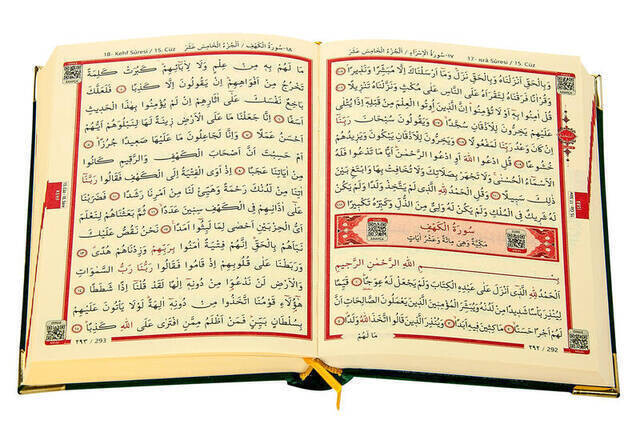 ١٧-سُورَةُ الْاِسْرَاءِ / اَلْجُزْءُ الْخَامِسَ عَشَرَ 17- İsrâ Sûresi / 15. Cüz
وَبِالْحَقِّ اَنْزَلْنَاهُ وَبِالْحَقِّ نَزَلَ وَمَٓا اَرْسَلْنَاكَ اِلَّا مُبَشِّرًا وَنَذٖيرًا ﴿١٠٥﴾
وَقُرْاٰنًا فَرَقْنَاهُ لِتَقْرَاَهُ عَلَى النَّاسِ عَلٰى مُكْثٍ وَنَزَّلْنَاهُ تَنْزٖيلًا ﴿١٠٦﴾
قُلْ اٰمِنُوا بِهٖٓ اَوْ لَا تُؤْمِنُوا اِنَّ الَّذٖينَ اُوتُوا الْعِلْمَ مِنْ قَبْلِهٖٓ اِذَا يُتْلٰى
عَلَيْهِمْ يَخِرُّونَ لِلْاَذْقَانِ سُجَّدًا ﴿١٠٧﴾ وَيَقُولُونَ سُبْحَانَ رَبِّنَٓا
اِنْ كَانَ وَعْدُ رَبِّنَا لَمَفْعُولًا ﴿١٠٨﴾ وَيَخِرُّونَ لِلْاَذْقَانِ يَبْكُونَ وَيَزٖيدُهُمْ
خُشُوعًا ﴿١٠٩﴾ قُلِ ادْعُوا اللّٰهَ اَوِ ادْعُوا الرَّحْمٰنَ اَيًّا مَا تَدْعُوا فَلَهُ
الْاَسْمَٓاءُ الْحُسْنٰى وَلَا تَجْهَرْ بِصَلَاتِكَ وَلَا تُخَافِتْ بِهَا وَابْتَغِ بَيْنَ
ذٰلِكَ سَبٖيلًا ﴿١١٠﴾ وَقُلِ الْحَمْدُ لِلّٰهِ الَّذٖي لَمْ يَتَّخِذْ وَلَدًا وَلَمْ يَكُنْ
لَهُ شَرٖيكٌ فِي الْمُلْكِ وَلَمْ يَكُنْ لَهُ وَلِيٌّ مِنَ الذُّلِّ وَكَبِّرْهُ تَكْبٖيرًا ﴿١١١﴾
سُورَةُ الْكَهْفِ
مَكِّيَّةٌ وَهِيَ مِائَةٌ وَعَشْرُ اٰيَاتٍ
بِسْمِ اللّٰهِ الرَّحْمٰنِ الرَّحٖيمِ
اَلْحَمْدُ لِلّٰهِ الَّذٖٓي اَنْزَلَ عَلٰى عَبْدِهِ الْكِتَابَ وَلَمْ يَجْعَلْ لَهُ عِوَجًا ﴿١﴾ قَيِّمًا
لِيُنْذِرَ بَاْسًا شَدٖيدًا مِنْ لَدُنْهُ وَيُبَشِّرَ الْمُؤْمِنٖينَ الَّذٖينَ يَعْمَلُونَ الصَّالِحَاتِ اَنَّ
لَهُمْ اَجْرًا حَسَنًا ﴿٢﴾ مَاكِثٖينَ فٖيهِ اَبَدًا ﴿٣﴾ وَيُنْذِرَ الَّذٖينَ قَالُوا اتَّخَذَ اللّٰهُ وَلَدًا ﴿٤﴾
مَا لَهُمْ
٢٩٢ / 292
١٨-سُورَةُ الْكَهْفِ / اَلْجُزْءُ الْخَامِسَ عَشَرَ 18- Kehf Sûresi / 15. Cüz
مَا لَهُمْ بِهٖ مِنْ عِلْمٍ وَلَا لِاٰبَٓائِهِمْ كَبُرَتْ كَلِمَةً
تَخْرُجُ مِنْ اَفْوَاهِهِمْ اِنْ يَقُولُونَ اِلَّا كَذِبًا ﴿٥﴾ فَلَعَلَّكَ
بَاخِعٌ نَفْسَكَ عَلٰٓى اٰثَارِهِمْ اِنْ لَمْ يُؤْمِنُوا بِهٰذَا الْحَدٖيثِ
اَسَفًا ﴿٦﴾ اِنَّا جَعَلْنَا مَا عَلَى الْاَرْضِ زٖينَةً لَهَا لِنَبْلُوَهُمْ اَيُّهُمْ
اَحْسَنُ عَمَلًا ﴿٧﴾ وَاِنَّا لَجَاعِلُونَ مَا عَلَيْهَا صَعٖيدًا جُرُزًا ﴿٨﴾
اَمْ حَسِبْتَ اَنَّ اَصْحَابَ الْكَهْفِ وَالرَّقٖيمِ كَانُوا
مِنْ اٰيَاتِنَا عَجَبًا ﴿٩﴾ اِذْ اَوَى الْفِتْيَةُ اِلَى الْكَهْفِ فَقَالُوا رَبَّنَٓا
اٰتِنَا مِنْ لَدُنْكَ رَحْمَةً وَهَيِّئْ لَنَا مِنْ اَمْرِنَا رَشَدًا ﴿١٠﴾ فَضَرَبْنَا
عَلٰٓى اٰذَانِهِمْ فِي الْكَهْفِ سِنٖينَ عَدَدًا ﴿١١﴾ ثُمَّ بَعَثْنَاهُمْ لِنَعْلَمَ
اَيُّ الْحِزْبَيْنِ اَحْصٰى لِمَا لَبِثُٓوا اَمَدًا ﴿١٢﴾ نَحْنُ نَقُصُّ عَلَيْكَ
نَبَاَهُمْ بِالْحَقِّ اِنَّهُمْ فِتْيَةٌ اٰمَنُوا بِرَبِّهِمْ وَزِدْنَاهُمْ هُدًى ﴿١٣﴾
وَرَبَطْنَا عَلٰى قُلُوبِهِمْ اِذْ قَامُوا فَقَالُوا رَبُّنَا رَبُّ السَّمٰوَاتِ
وَالْاَرْضِ لَنْ نَدْعُوَا مِنْ دُونِهٖٓ اِلٰهًا لَقَدْ قُلْنَٓا اِذًا شَطَطًا ﴿١٤﴾
هٰٓؤُلَٓاءِ قَوْمُنَا اتَّخَذُوا مِنْ دُونِهٖٓ اٰلِهَةً لَوْلَا يَاْتُونَ عَلَيْهِمْ
بِسُلْطَانٍ بَيِّنٍ فَمَنْ اَظْلَمُ مِمَّنِ افْتَرٰى عَلَى اللّٰهِ كَذِبًا ﴿١٥﴾
٢٩٣ / 293